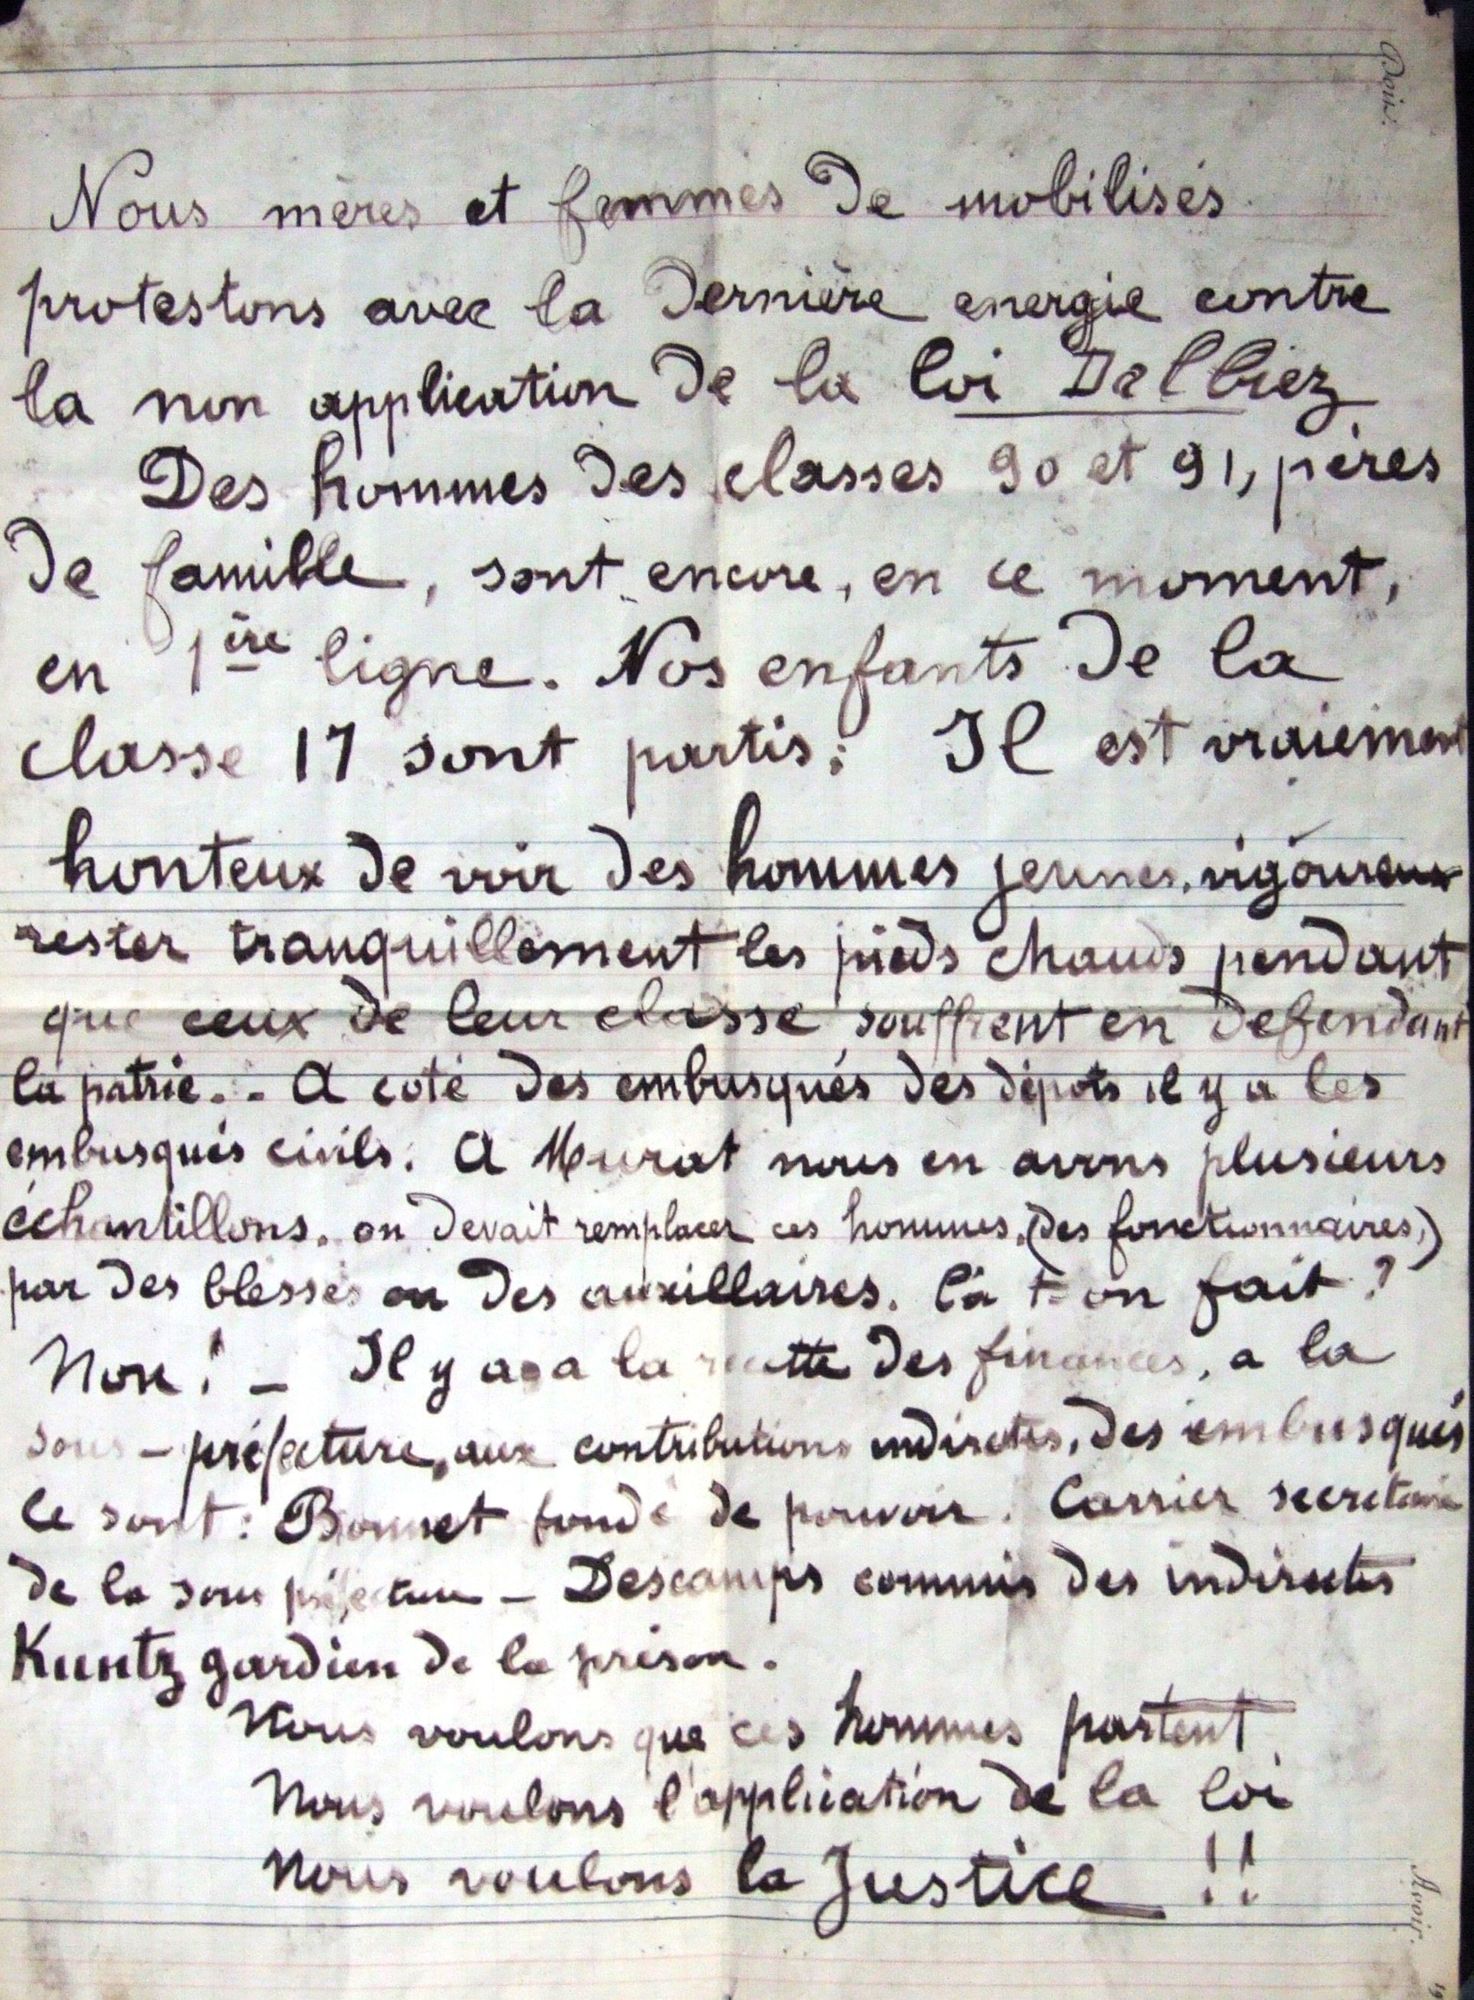 Doit.
Nous mères et femmes de mobilisés
protestons avec la dernière energie contre
la non application de la loi Dalbiez
Des hommes des classes 90 et 91, pères
de famille, sont encore, en ce moment,
en 1ère ligne. Nos enfants de la
classe 17 sont partis; Il est vraiement
honteux de voir des hommes jeunes, vigoureux
rester tranquillement les pieds chauds pendant
que ceux de leur classe souffrent en defendant
la patrie. - A coté des embusqués des dépots il y a les
embusqués civils. A Murat nous en avons plusieurs
échantillons. on devait remplacer ces hommes, (des fonctionnaires,)
par des blessés ou des auxillaires. l'a t-on fait ?
Non ! - Il y a a la recette des finances, a la
sous-préfecture, aux contributions indirectes, des embusqués
ce sont : Bonnet fondé de pouvoir. Carrier secretaire
de la sous préfecture - Descamps commis des indirectes
Kuntz gardien de la prison.
Nous voulons que ces hommes partent
Nous voulons l'application de la loi
Nous voulons la Justice !!
Avoir.